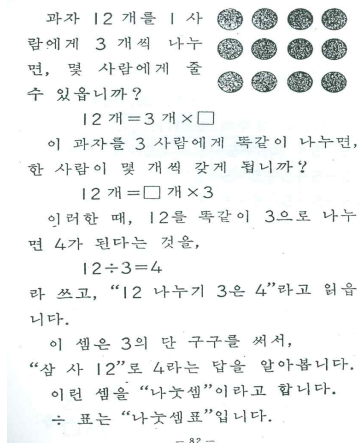 과자 12 개를 1 사
람에게 3 개씩 나누
면, 몇 사람에게 줄
수 있읍니까?
12 개=3 개×□
이 과자를 3 사람에게 똑같이 나누면,
한 사람이 몇 개씩 갖게 됩니까?
12 개=□ 개×3
이러한 때, 12를 똑같이 3으로 나누
면 4가 된다는 것을,
12÷3=4
라 쓰고, “12 나누기 3은 4”라고 읽읍
니다.
이 셈은 3의 단 구구를 써서,
“삼 사 12”로 4라는 답을 알아봅니다.
이런 셈을 “나눗셈”이라고 합니다.
÷ 표는 “나눗셈표”입니다.
— 82 —